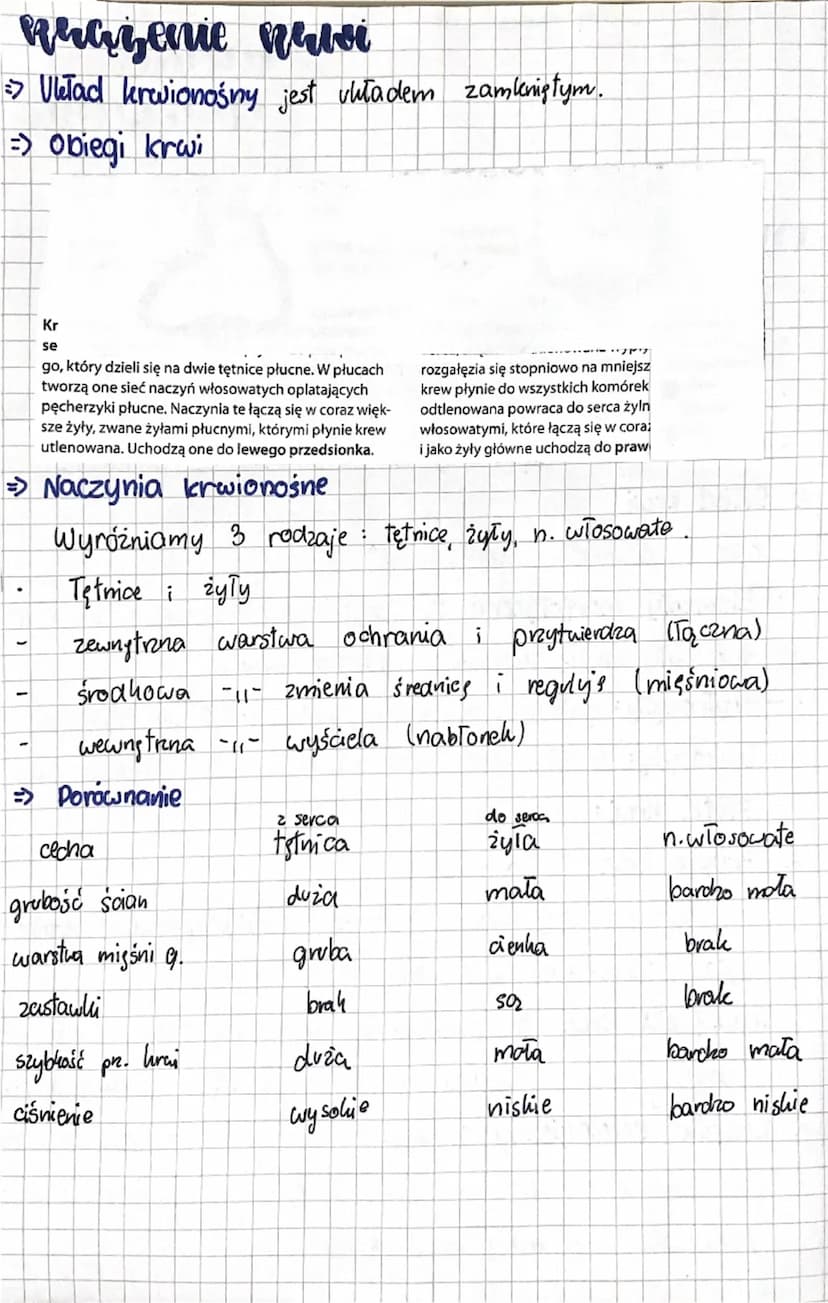 krążenie krwi
=> Układ krwionośny jest układem zamkniętym.
=> Obiegi krwi
Kr
se
go, który dzieli się na dwie tętnice płucne. W płucach
tworzą one sieć naczyń włosowatych oplatających
pęcherzyki płucne. Naczynia te łączą się w coraz więk-
sze żyły, zwane żyłami płucnymi, którymi płynie krew
utlenowana. Uchodzą one do lewego przedsionka.
rozgałęzia się stopniowo na mniejsz
krew płynie do wszystkich komórek
odtlenowana powraca do serca żyln
włosowatymi, które łączą się w cora
i jako żyły główne uchodzą do praw
=> Naczynia krwionośne
Wyróżniamy 3 rodzaje : tętnice, żyły, n. włosowate.
· Tętnice i żyły
- zewnętrzna warstwa ochrania i przytwierdza (łączna)
- środkowa -11- zmienia średnicę i reguluje (mięśniowa)
- wewnętrzna -11- wyściela (nabłonek)
=> Porównanie
z serca do serca
cecha tętnica żyła n. włosowate
grubość ścian duża mała bardzo mała
warstwa mięśni g. gruba cienka brak
zastawki brak są brak
szybkość prz. krwi duża mała bardzo mała
ciśnienie wysokie niskie bardzo niskie